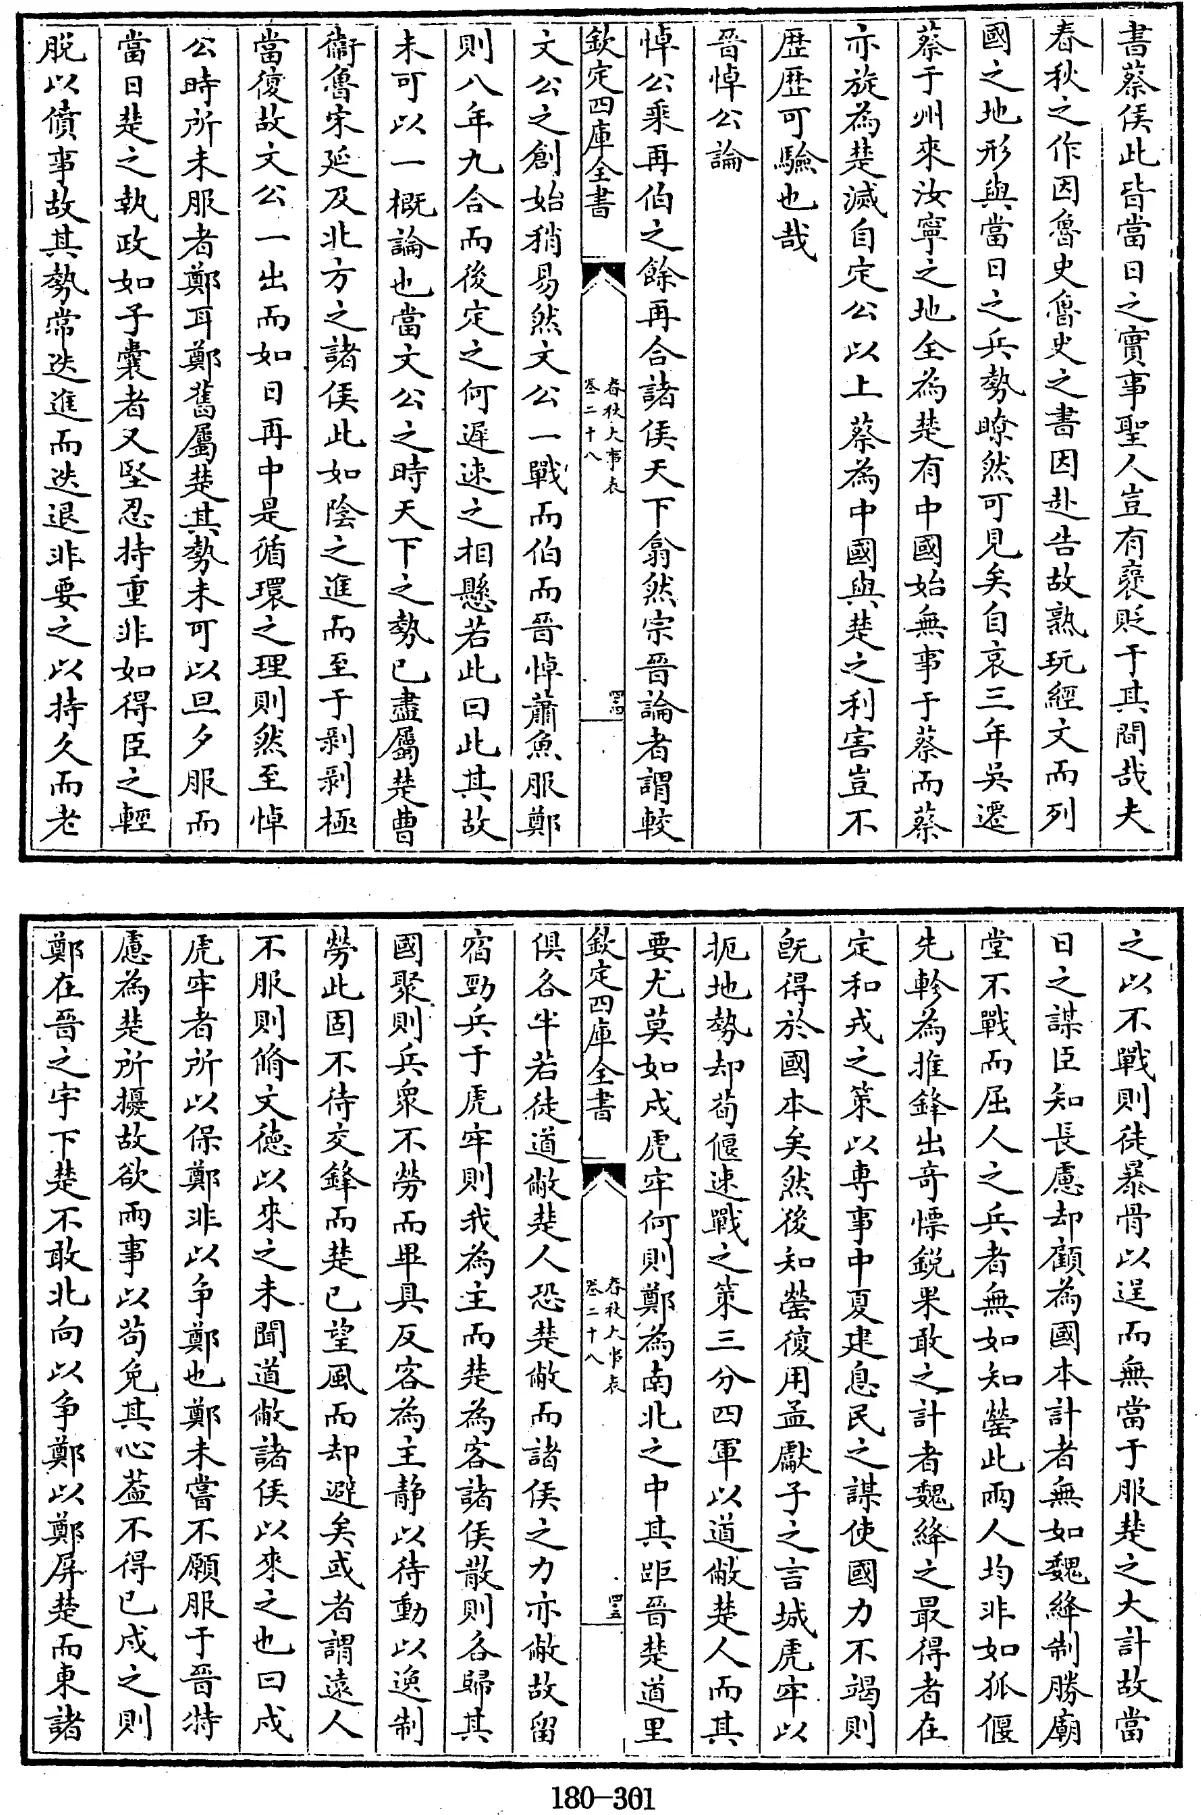 書蔡侯此皆當日之實事聖人豈有褒貶于其間哉夫
春秋之作因魯史魯史之書因赴告故熟玩經文而列
國之地形與當日之兵勢瞭然可見矣自哀三年吳遷
蔡于州來汝寧之地全為楚有中國始無事于蔡而蔡
亦旋為楚滅自定公以上蔡為中國與楚之利害豈不
歴歴可驗也哉
晉悼公論
悼公乘再伯之餘再合諸侯天下翕然宗晉論者謂較
欽定四庫全書
春秋大事表
卷二十八
四四
文公之創始稍易然文公一戰而伯而晉悼蕭魚服鄭
則八年九合而後定之何遲速之相懸若此曰此其故
未可以一概論也當文公之時天下之勢已盡屬楚曹
衞魯宋延及北方之諸侯此如陰之進而至于剥剥極
當復故文公一出而如日再中是循環之理則然至悼
公時所未服者鄭耳鄭舊屬楚其勢未可以旦夕服而
當日楚之執政如子囊者又堅忍持重非如得臣之輕
脱以僨事故其勢常迭進而迭退非要之以持久而老
之以不戰則徒暴骨以逞而無當于服楚之大計故當
日之謀臣知長慮却顧為國本計者無如魏絳制勝廟
堂不戰而屈人之兵者無如知罃此兩人均非如狐偃
先軫為推鋒出竒慓銳果敢之計者魏絳之最得者在
定和戎之策以專事中夏建息民之謀使國力不竭則
既得於國本矣然後知罃復用孟獻子之言城虎牢以
扼地勢却荀偃速戰之策三分四軍以道敝楚人而其
要尤莫如戍虎牢何則鄭為南北之中其距晉楚道里
欽定四庫全書
春秋大事表
卷二十八
四五
俱各半若徒道敝楚人恐楚敝而諸侯之力亦敝故留
宿勁兵于虎牢則我為主而楚為客諸侯散則各歸其
國聚則兵衆不勞而畢具反客為主静以待動以逸制
勞此固不待交鋒而楚已望風而却避矣或者謂遠人
不服則脩文德以來之未聞道敝諸侯以來之也曰戍
虎牢者所以保鄭非以争鄭也鄭未嘗不願服于晉特
慮為楚所擾故欲兩事以苟免其心葢不得已戍之則
鄭在晉之宇下楚不敢北向以争鄭以鄭屏楚而東諸
180-301